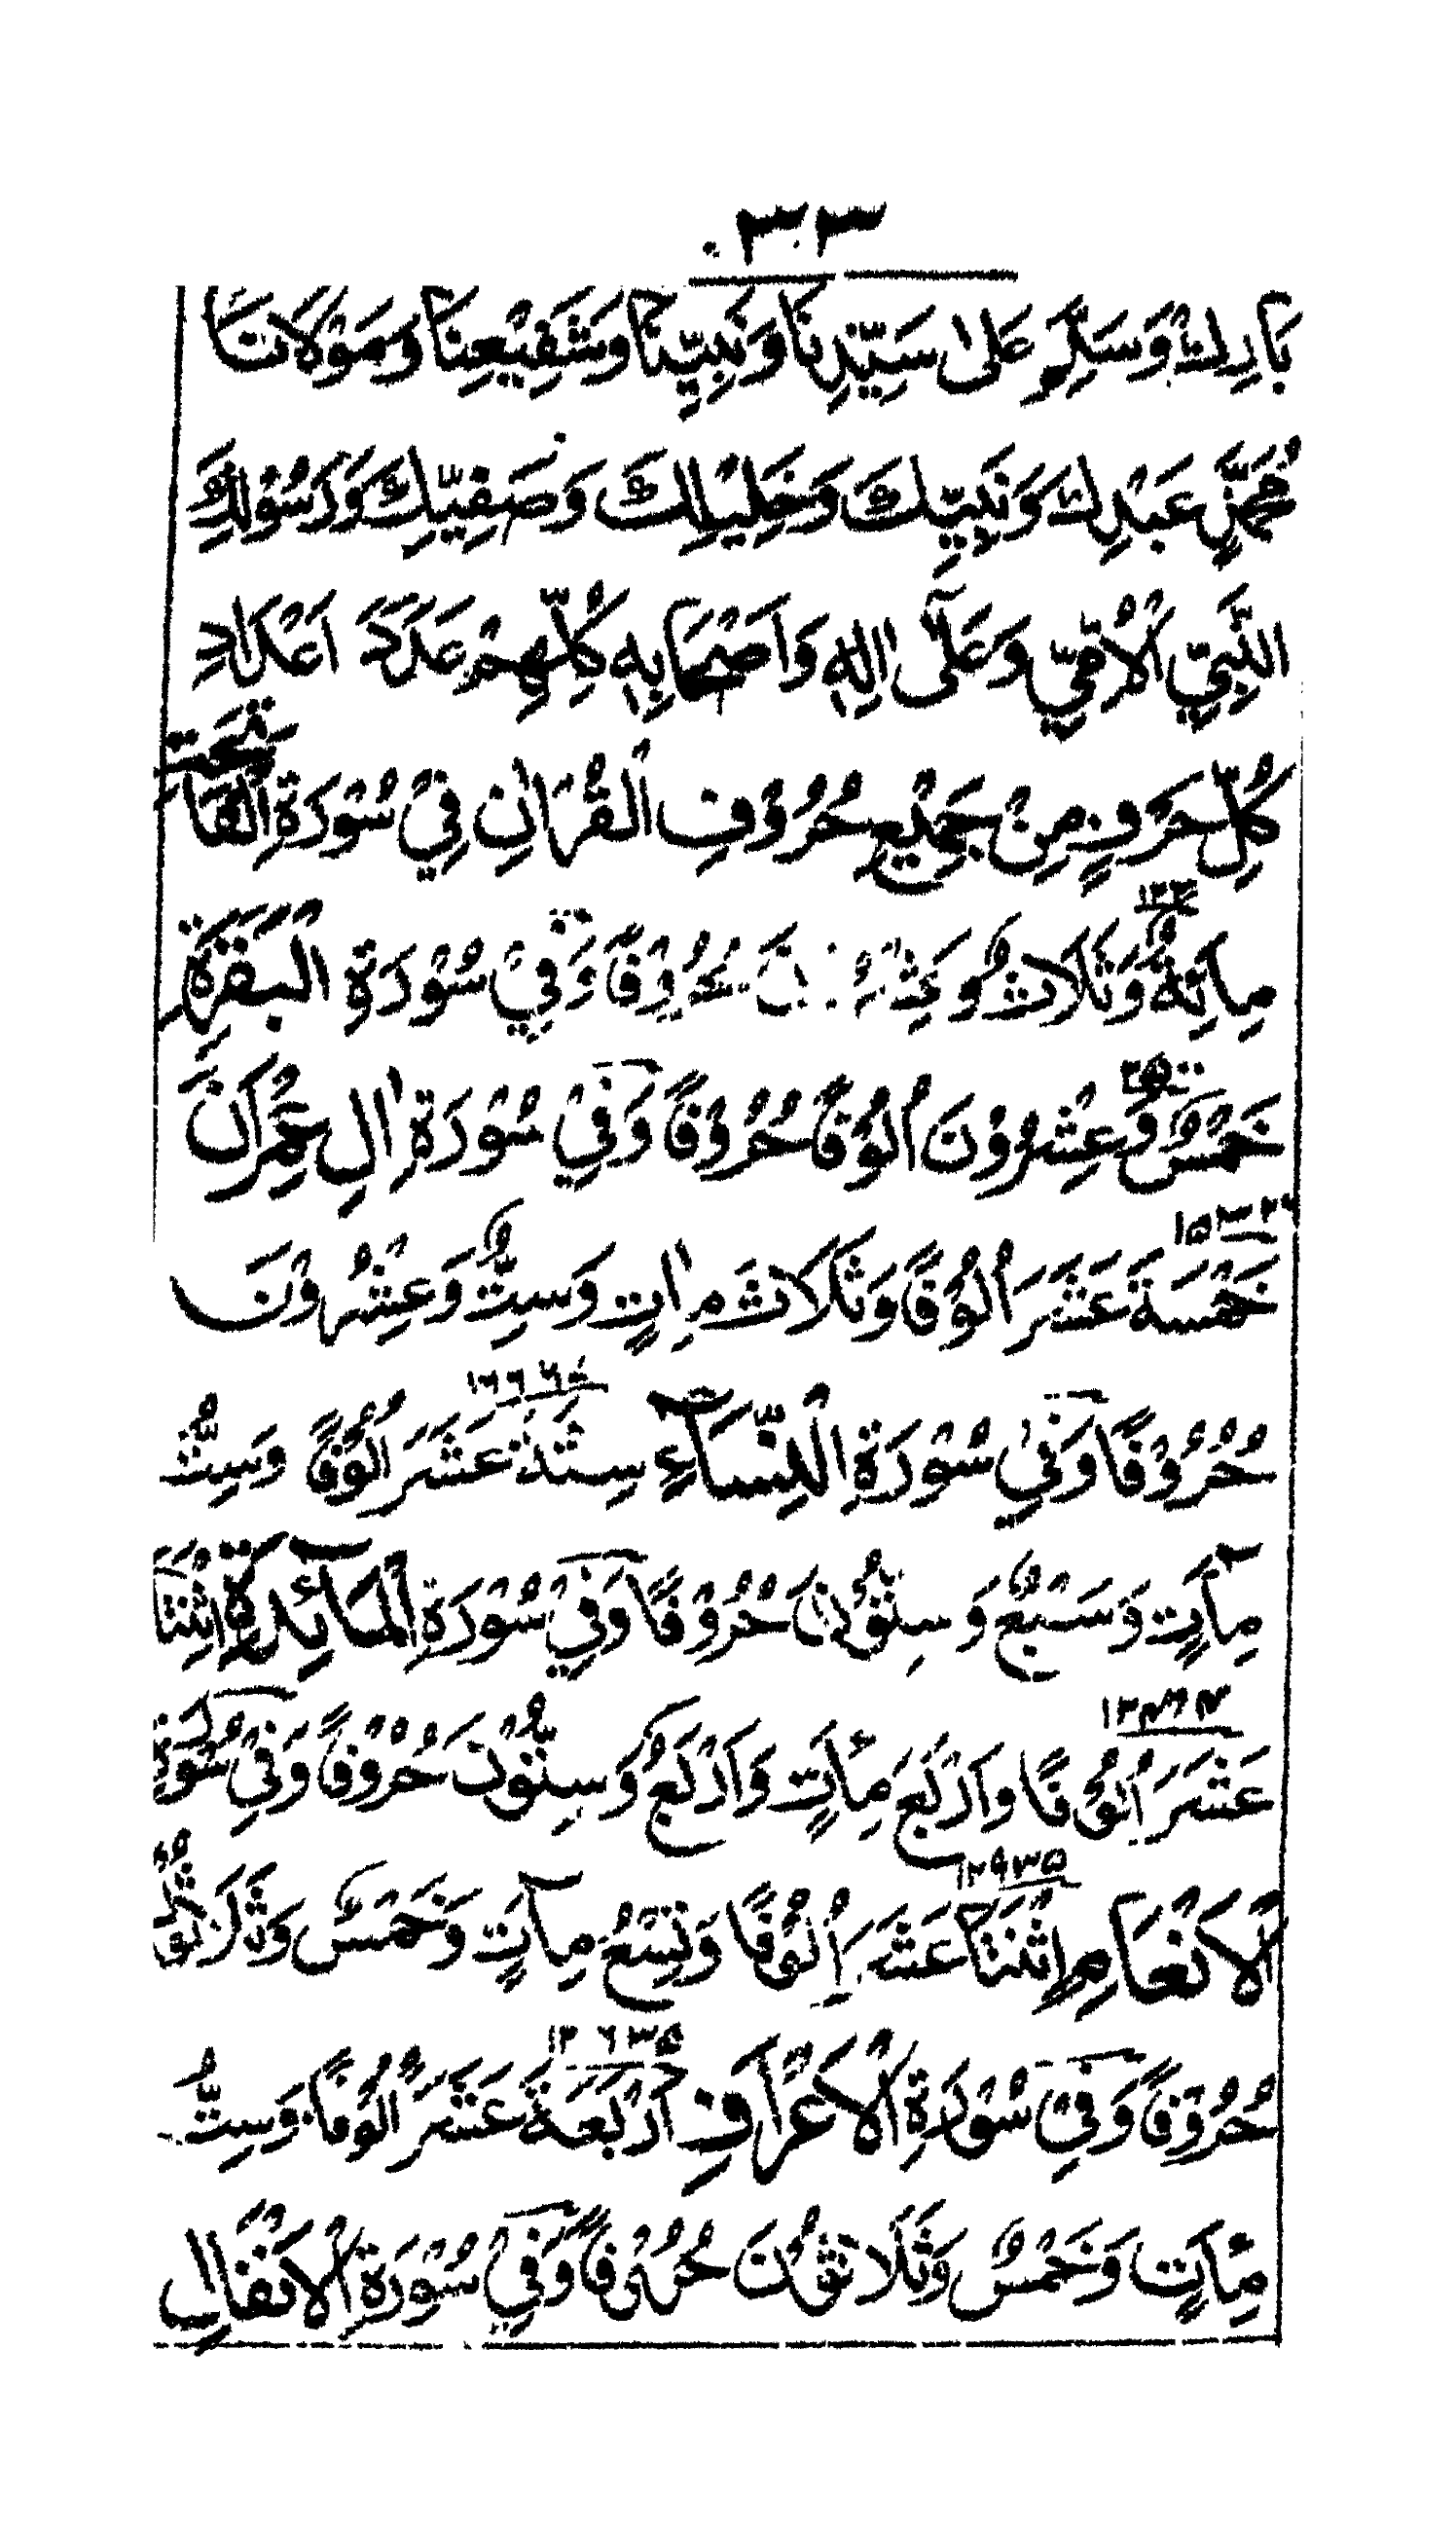 ٣٣٠
بَارِكْ وَسَلِّمْ عَلٰى سَيِّدِنَا وَنَبِيِّنَا وَشَفِيْعِنَا وَمَوْلَانَا
مُحَمَّدٍ عَبْدِكَ وَنَبِيِّكَ وَخَلِيْلِكَ وَصَفِيِّكَ وَرَسُوْلِكَ
النَّبِيِّ الْاُمِّيِّ وَعَلٰٓى اٰلِهٖ وَاَصْحَابِهٖ كُلِّهِمْ عَدَدَ اَعْدَادِ
كُلِّ حَرْفٍ مِنْ جَمِيْعِ حُرُوْفِ الْقُرْاٰنِ فِيْ سُوْرَةِ الْفَاتِحَةِ
١٢٣
مِائَةٌ وَثَلَاثٌ وَ حُرُوْفًا وَفِيْ سُوْرَةِ الْبَقَرَةِ
٢٥٥٠٠
خَمْسٌ وَعِشْرُوْنَ اُلُوْفًا حُرُوْفًا وَفِيْ سُوْرَةِ اٰلِ عِمْرَانَ
١٥٣٢٦
خَمْسَةَ عَشَرَ اُلُوْفًا وَثَلَاثَ مِاٰتٍ وَسِتٌّ وَعِشْرُوْنَ
١٦٦٦٧
حُرُوْفًا وَفِيْ سُوْرَةِ النِّسَآءِ سِتَّةَ عَشَرَ اُلُوْفًا وَسِتُّ
مِاٰتٍ وَسَبْعٌ وَسِتُّوْنَ حُرُوْفًا وَفِيْ سُوْرَةِ الْمَآئِدَةِ اثْنَتَا
١٢٤٦٤
عَشَرَ اُلُوْفًا وَاَرْبَعَ مِاٰتٍ وَاَرْبَعٌ وَسِتُّوْنَ حُرُوْفًا وَفِيْ سُوْرَةِ
١٢٩٣٥
الْاَنْعَامِ اثْنَتَا عَشَرَ اُلُوْفًا وَتِسْعُ مِاٰتٍ وَخَمْسٌ وَثَلٰثُوْنَ
١٤٦٣٥
حُرُوْفًا وَفِيْ سُوْرَةِ الْاَعْرَافِ اَرْبَعَةَ عَشَرَ اُلُوْفًا وَسِتُّ
مِاٰتٍ وَخَمْسٌ وَثَلَاثُوْنَ حُرُوْفًا وَفِيْ سُوْرَةِ الْاَنْفَالِ